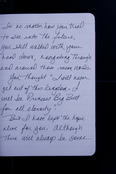 So no matter how you tried
to see into the future,
you still walked with your
head down, navigating through
and around these mine
You thought "I will never
get out of this dungeon. I
will be Princess Big Butt
for all eternity."
But I have kept the hope
alive for you. Although
there will always be some